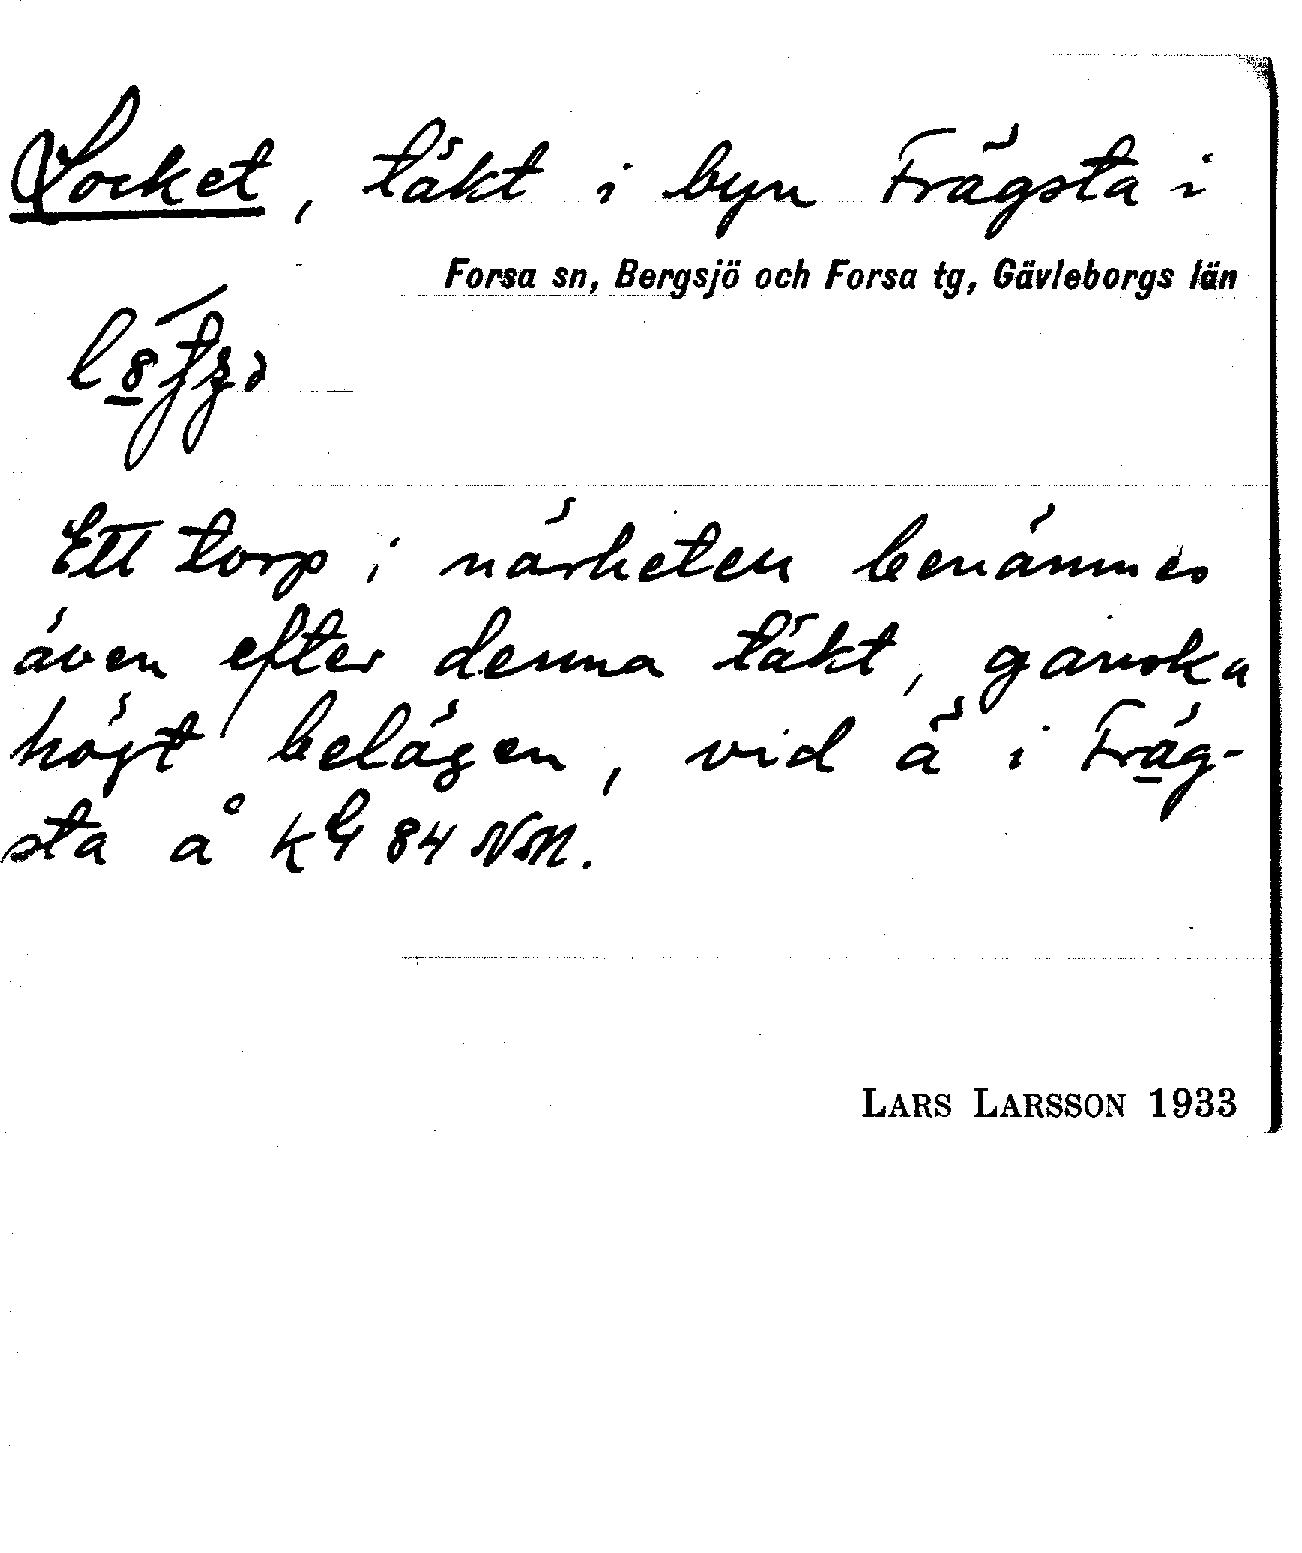 Locket, täkt i byn Frägsta i
Forsa sn, Bergsjö och Forsa tg, Gävleborgs län
Ett torp i närheten benämnes
även efter denna täkt, ganska
högt belägen, vid ä i Fräg-
sta å kbl 84 NM.
LARS LARSSON 1933